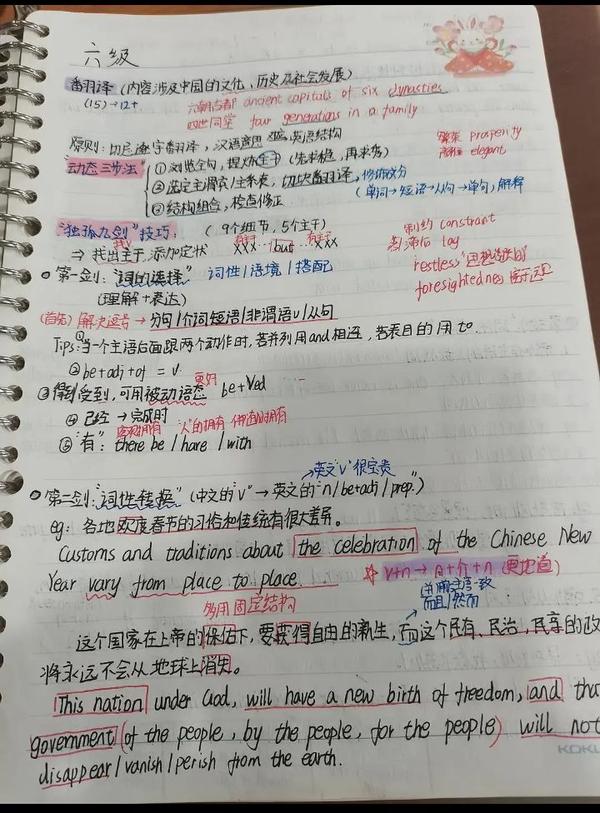 六级
翻译 (内容涉及中国的文化、历史及社会发展)
(15)→12+
六朝古都 ancient capitals of six dynasties
四世同堂 four generations in a family
原则: 切忌逐字翻译, 汉语意思 英语结构
繁荣 prosperity
elegant
"动态三步法"
① 浏览全句, 提炼主干 (先求稳, 再求秀)
② 选定主谓宾/主系表, 切块翻译, 修饰成分
(单词→短语→从句→单句), 解释
③ 结构组合, 检查修正
"独孤九剑"技巧: (9个细节, 5个主干)
⇒ 找出主干, 添加定状 XXX but XXX
制约 constraint
落后 lag
restless
foresightedness
第一剑: "词的选择" 词性 | 语境 | 搭配
(理解+表达)
(首先) 解决逗号 → 分句|个词短语|非谓语v|从句
Tips: ①当一个主语后面跟两个动作时, 若并列用and相连, 若表目的用to.
② be+adj+of = v.
③ 得到受到, 可用被动语态 be+Ved
更好
④ 已经 → 完成时
⑤ "有": there be / have / with
第二剑: "词性转换" (中文的"v" → 英文的"n/be+adj/prep.")
→英文"v"很宝贵
eg: 各地欢度春节的习俗和传统有很大差异。
Customs and traditions about the celebration of the Chinese New
Year vary from place to place.
☆ v+n → n+介+n (更地道)
多用固定结构
而且/然而
这个国家在上帝的保佑下, 要获得自由的新生, 而这个民有、民治、民享的政
将永远不会从地球上消失。
This nation under God, will have a new birth of freedom, and tha
government (of the people, by the people, for the people) will not
disappear / vanish / perish from the earth.
KOKU